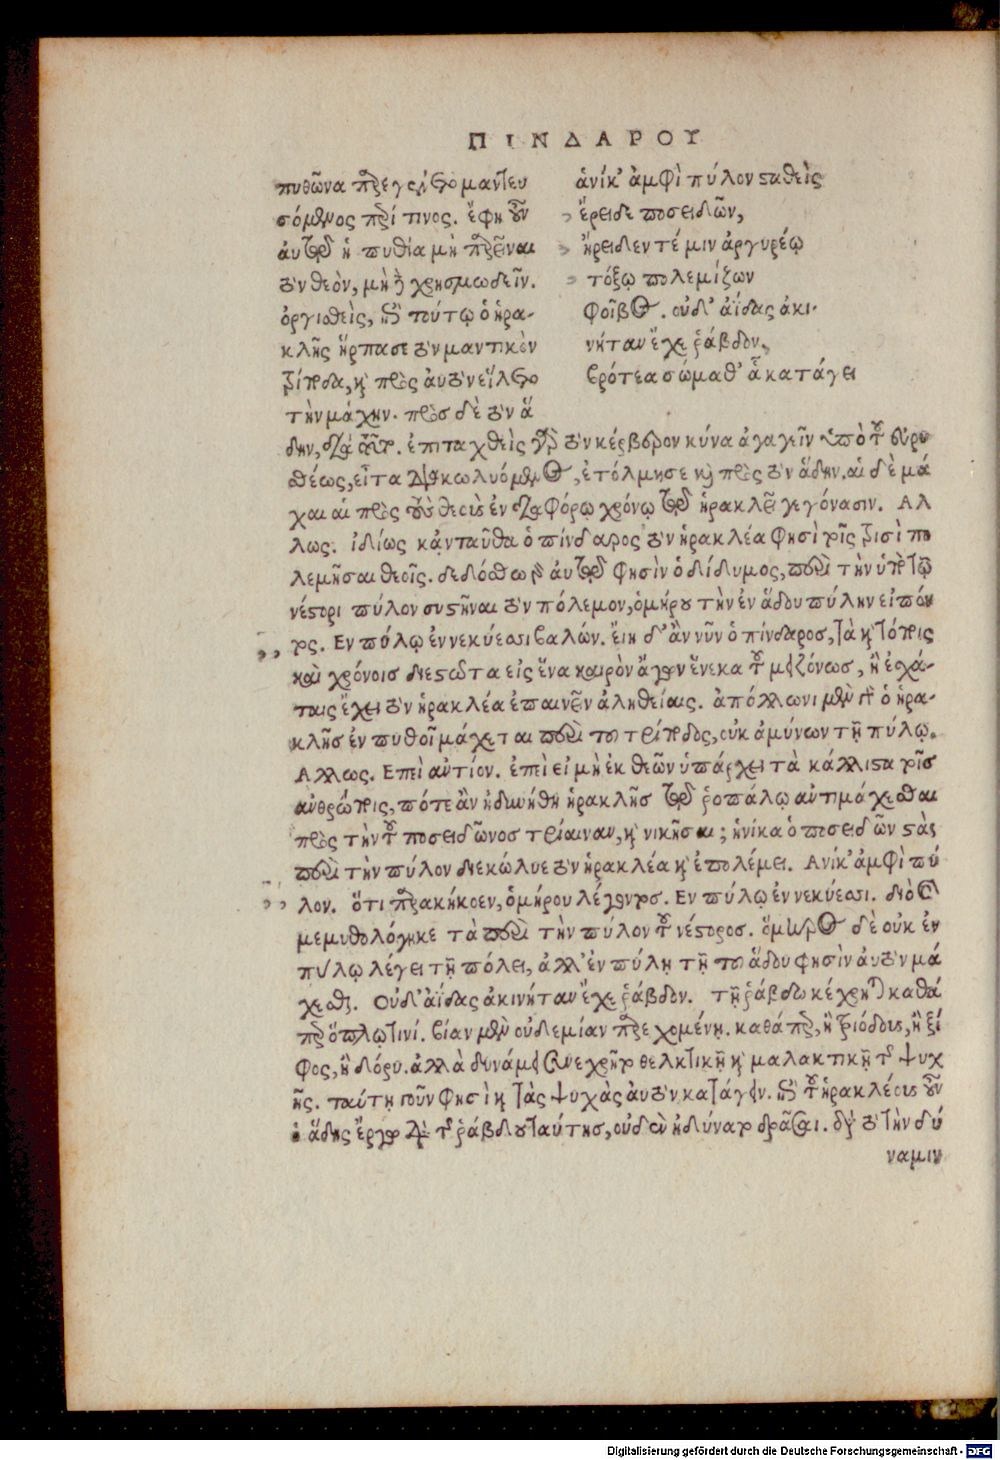 ΠΙΝΔΑΡΟΥ
πυθῶνα παρεγένετο μαντευ
σόμενος περί τινος. ἔφη οὖν
ἀυτῷ ἡ πυθία μὴ παρεῖναι
τὸν θεὸν, μὴ δὲ χρησμωδεῖν.
ὀργισθεὶς, ἐπὶ τούτῳ ὁ ἡρα-
κλῆς ἥρπασε τὸν μαντικὸν
τρίποδα, καὶ πρὸς ἀυτὸν εἵλετο
τὴν μάχην. πρὸσ δὲ τὸν ἅ
ἁνίκ' ἀμφὶ πύλον σταθεὶς
ἔρειδε ποσειδῶν,
ἤρειδεν τέ μιν ἀργυρέῳ
τόξῳ πολεμίζων
φοῖβος. οὐδ' ἀΐδας ἀκι-
νήταν ἔχε ῥάβδον,
βρότεα σώμαθ' ᾇ κατάγει
δην, διὰ ταῦτα. ἐπιταχθεὶς γὰρ τὸν κέρβερον κύνα ἀγαγεῖν ὑπὸ τοῦ εὐρυ
σθέως, εἶτα διακωλυόμενος, ἐτόλμησε καὶ πρὸς τὸν ἅδην. αἱ δὲ μά
χαι αἱ πρὸς τοὺς θεοὺς ἐν διαφόρῳ χρόνῳ τῷ ἡρακλεῖ γεγόνασιν. Αλ
λως. ἰδίως κᾀνταῦθα ὁ πίνδαρος τὸν ἡρακλέα φησὶ τοῖς τρισὶ πο
λεμῆσαι θεοῖς. δεδόσθω γὰρ ἀυτῷ φησὶν ὁ δίδυμος, περὶ τὴν ὑπὸ τῷ
νέστορι πύλον συστῆναι τὸν πόλεμον, ὁμήρου τὴν ἐν ἅδου πύλην εἰπόν
τος. Εν πύλῳ ἐν νεκύεσσι βαλών. ἔιη δ' ἂν νῦν ὁ πίνδαροσ, τὰ καὶ τόποις
καὶ χρόνοισ διεστῶτα εἰς ἕνα καιρὸν ἄγων ἕνεκα τοῦ μειζόνωσ, ἢ ἐσχά-
ταις ἔχει τὸν ἡρακλέα ἐπαινεῖν ἀληθείαις. ἀπόλλωνι μὲν γὰρ ὁ ἡρα-
κλῆσ ἐν πυθοῖ μάχεται περὶ του τρίποδος, οὐκ ἀμύνων τῇ πύλῳ.
Αλλως. Επεὶ αὐτίον. ἐπεὶ εἰ μὴ ἐκ θεῶν ὑπάρχει τὰ κάλλιστα τοῖσ
ἀνθρώποις, πότε ἂν ἠδυνήθη ἡρακλῆσ τῷ ῥοπάλῳ αὐτιμάχεσθαι
πρὸς τὴν τοῦ ποσειδῶνοσ τρίαιναν, καὶ νικῆσαι; ἡνίκα ὁ ποσειδῶν στὰς
περὶ τὴν πύλον διεκώλυε τὸν ἡρακλέα καὶ ἐπολέμει. Ανίκ' ἀμφὶ πύ
λον. ὅτι παρακήκοεν, ὁμήρου λέγοντοσ. Εν πύλῳ ἐν νεκύεσσι. διὸ
μεμυθολόγηκε τὰ περὶ τὴν πύλον τοῦ νέστοροσ. ὅμηρος δὲ οὐκ ἐν
πύλῳ λέγει τῇ πόλει, ἀλλ' ἐν πύλῃ τῇ του ἅδου φησὶν ἀυτὸν μά
χεσθαι. Οὐδ' ἀΐδας ἀκινήταν ἔχε ῥάβδον. τῇ ῥάβδῳ κέχρηται καθά
περ ὅπλῳ τινί. βίαν μὲν οὐδεμίαν παρεχομένῃ. καθάπερ, ἢ τριόδους, ἢ ξί
φος, ἢ δόρυ. ἀλλὰ δυνάμει ἐχρῆτο θελκτικῇ καὶ μαλακτικῇ τῆς ψυχ
ῆς. ταύτῃ γοῦν φησὶ καὶ τὰς ψυχὰς ἀυτὸν κατάγειν. ἐπὶ τοῦ ἡρακλέους οὖν
ὁ ἅδης ἔργον διὰ τῆς ῥάβδου ταύτησ, οὐδὲν ἠδύνατο δρᾶσαι. διὰ τὸ τὴν δύ
ναμιν
Digitalisierung gefördert durch die Deutsche Forschungsgemeinschaft - DFG